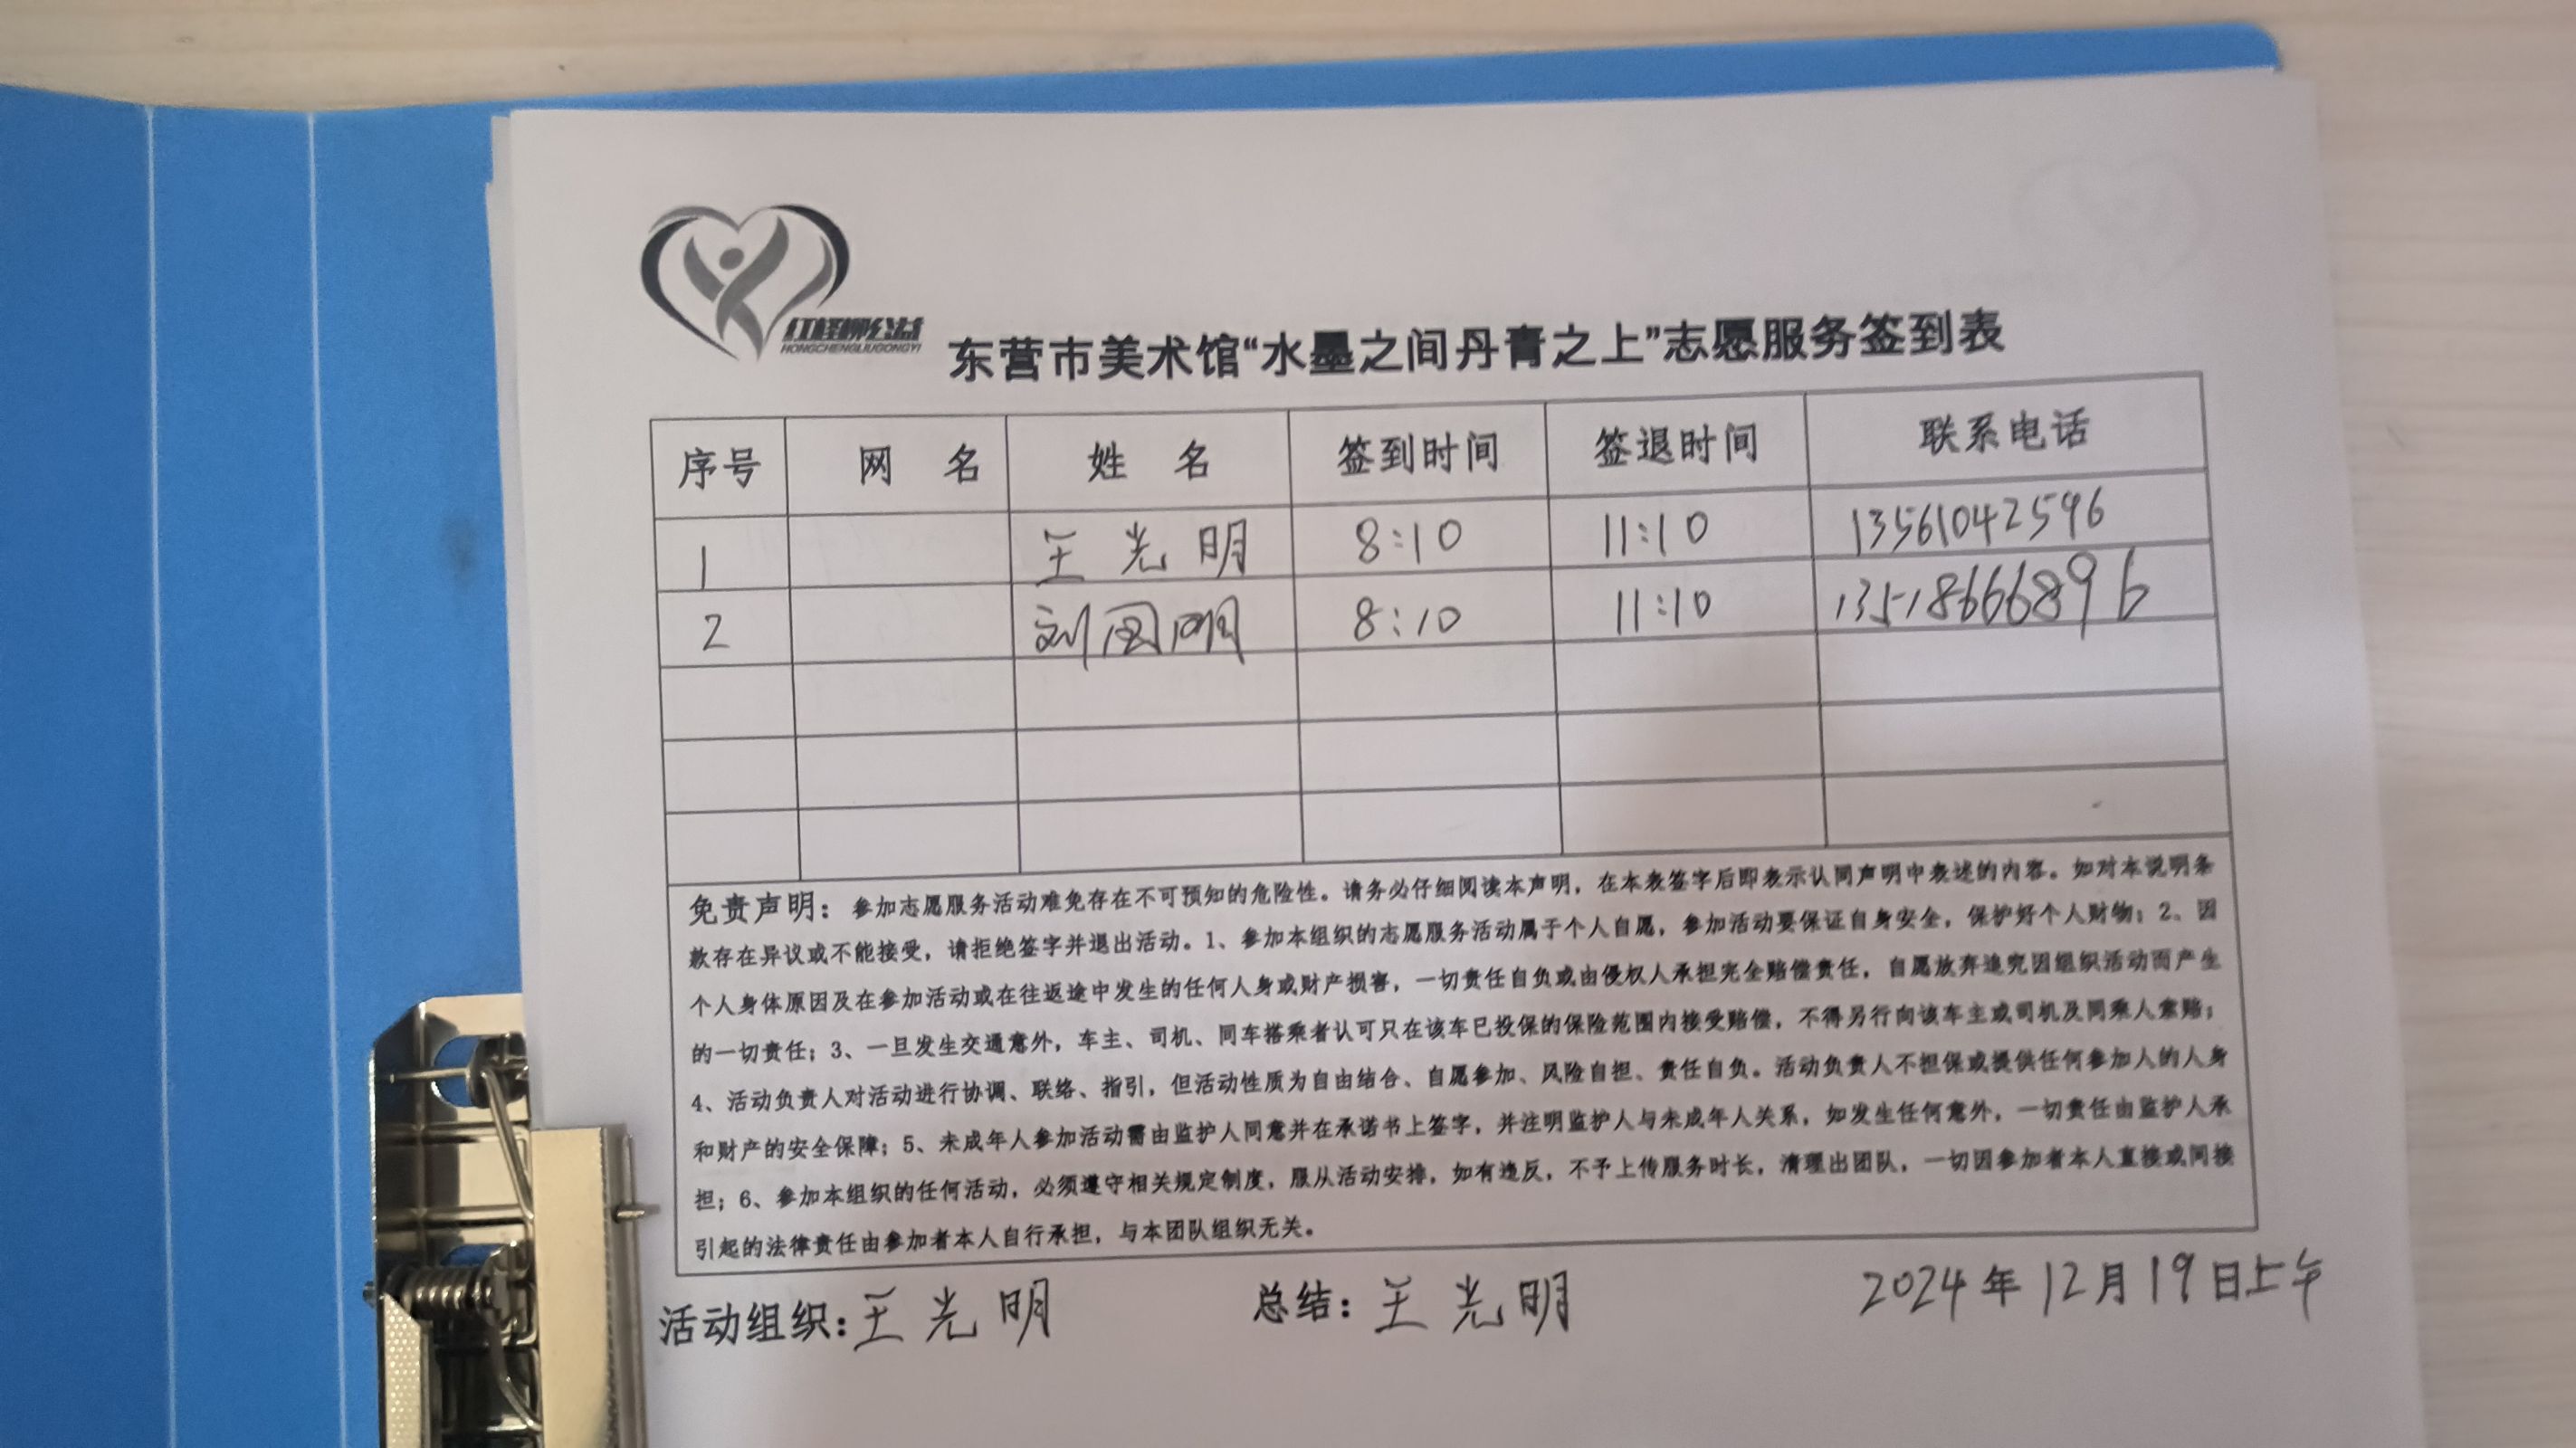 红柽柳公益
HONGCHENGLIUGONGYI
东营市美术馆“水墨之间丹青之上”志愿服务签到表
序号 网 名 姓 名 签到时间 签退时间 联系电话
1 王光明 8:10 11:10 13561042596
2 刘国明 8:10 11:10 13518666896
免责声明：参加志愿服务活动难免存在不可预知的危险性。请务必仔细阅读本声明，在本表签字后即表示认同声明中表述的内容。如对本说明条
款存在异议或不能接受，请拒绝签字并退出活动。1、参加本组织的志愿服务活动属于个人自愿，参加活动要保证自身安全，保护好个人财物；2、因
个人身体原因及在参加活动或在往返途中发生的任何人身或财产损害，一切责任自负或由侵权人承担完全赔偿责任，自愿放弃追究因组织活动而产生
的一切责任；3、一旦发生交通意外，车主、司机、同车搭乘者认可只在该车已投保的保险范围内接受赔偿，不得另行向该车主或司机及同乘人索赔；
4、活动负责人对活动进行协调、联络、指引，但活动性质为自由结合、自愿参加、风险自担、责任自负。活动负责人不担保或提供任何参加人的人身
和财产的安全保障；5、未成年人参加活动需由监护人同意并在承诺书上签字，并注明监护人与未成年人关系，如发生任何意外，一切责任由监护人承
担；6、参加本组织的任何活动，必须遵守相关规定制度，服从活动安排，如有违反，不予上传服务时长，清理出团队，一切因参加者本人直接或间接
引起的法律责任由参加者本人自行承担，与本团队组织无关。
活动组织：王光明 总结：王光明 2024年12月19日上午